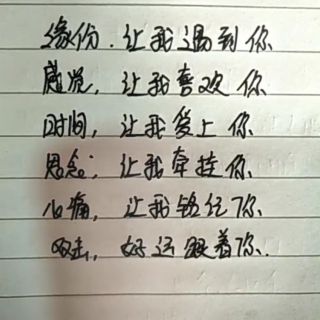 缘份．让我遇到你
感觉，让我喜欢你
时间，让我爱上你
思念；让我牵挂你
心痛，让我铭记了你
双击，好运跟着你．